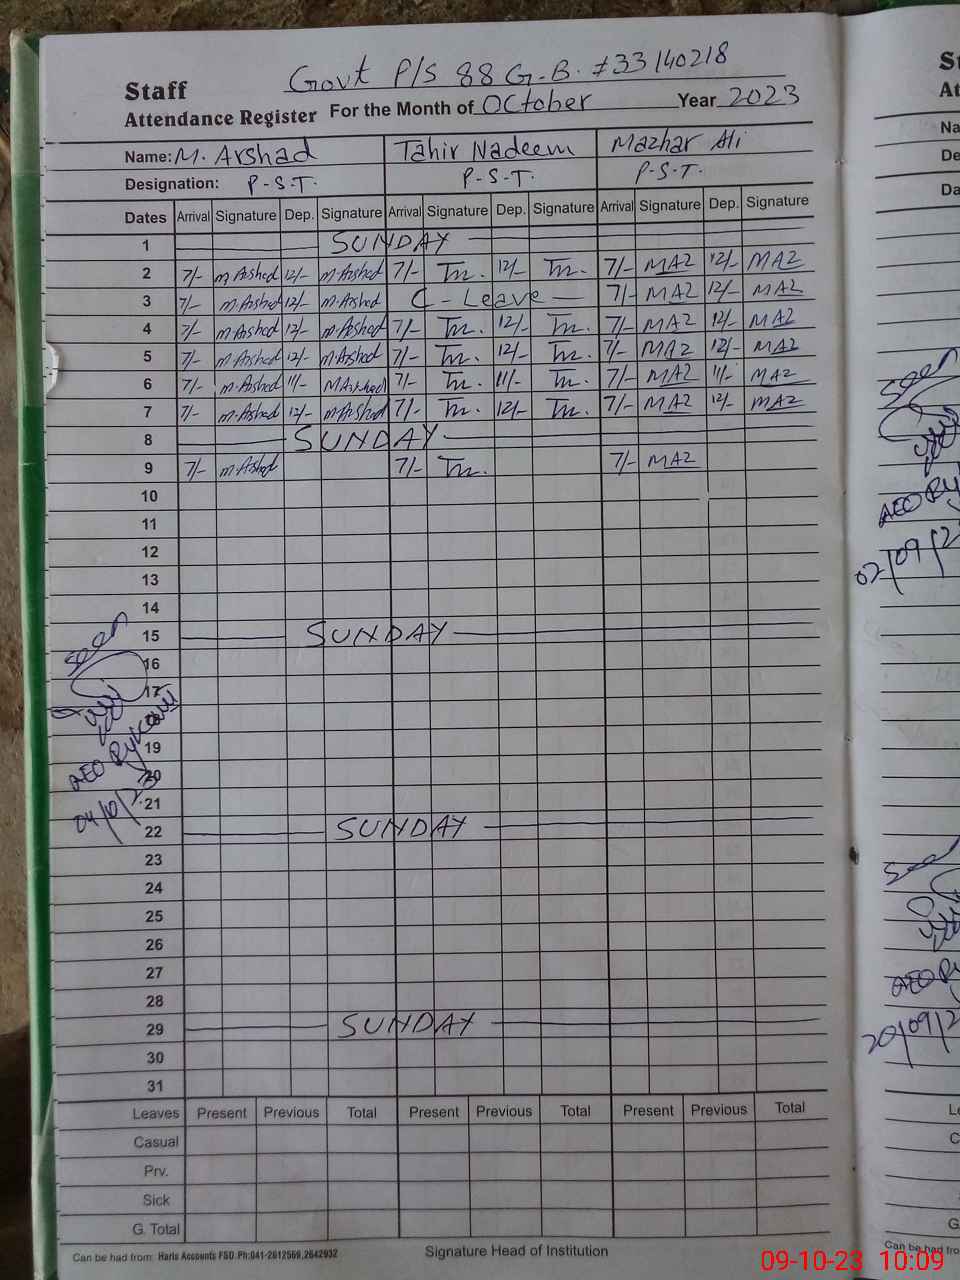 Staff
Govt P/S 88 G.B. #33140218
Attendance Register For the Month of October Year 2023
Name: M. Arshad Tahir Nadeem Mazhar Ali
Designation: P-S-T. P-S-T. P-S-T.
Dates Arrival Signature Dep. Signature Arrival Signature Dep. Signature Arrival Signature Dep. Signature
1 SUNDAY
2 7/- M.Arshad 12/- M.Arshad 7/- Tn. 12/- Tn. 7/- MAZ 12/- MAZ
3 7/- M.Arshad 12/- M.Arshad C-Leave 7/- MAZ 12/- MAZ
4 7/- M.Arshad 12/- M.Arshad 7/- Tn. 12/- Tn. 7/- MAZ 12/- MAZ
5 7/- M.Arshad 12/- M.Arshad 7/- Tn. 12/- Tn. 7/- MAZ 12/- MAZ
6 7/- M.Arshad 11/- M.Arshad 7/- Tn. 11/- Tn. 7/- MAZ 11/- MAZ
7 7/- M.Arshad 12/- M.Arshad 7/- Tn. 12/- Tn. 7/- MAZ 12/- MAZ
8 SUNDAY
9 7/- M.Arshad 7/- Tn. 7/- MAZ
10
11
12
13
14
15 SUNDAY
16
17
19
20
21
22 SUNDAY
23
24
25
26
27
28
29 SUNDAY
30
31
Leaves Present Previous Total Present Previous Total Present Previous Total
Casual
Prv.
Sick
G. Total
Can be had from: Haris Accounts FSD. Ph:041-2612569,2642932
Signature Head of Institution
Seen
AEO
04/10/23
St
At
Na
De
Da
Seen
AEO
02/09/2
Seen
AEO
20/09/2
Le
C
G
Can be had fro
09-10-23 10:09